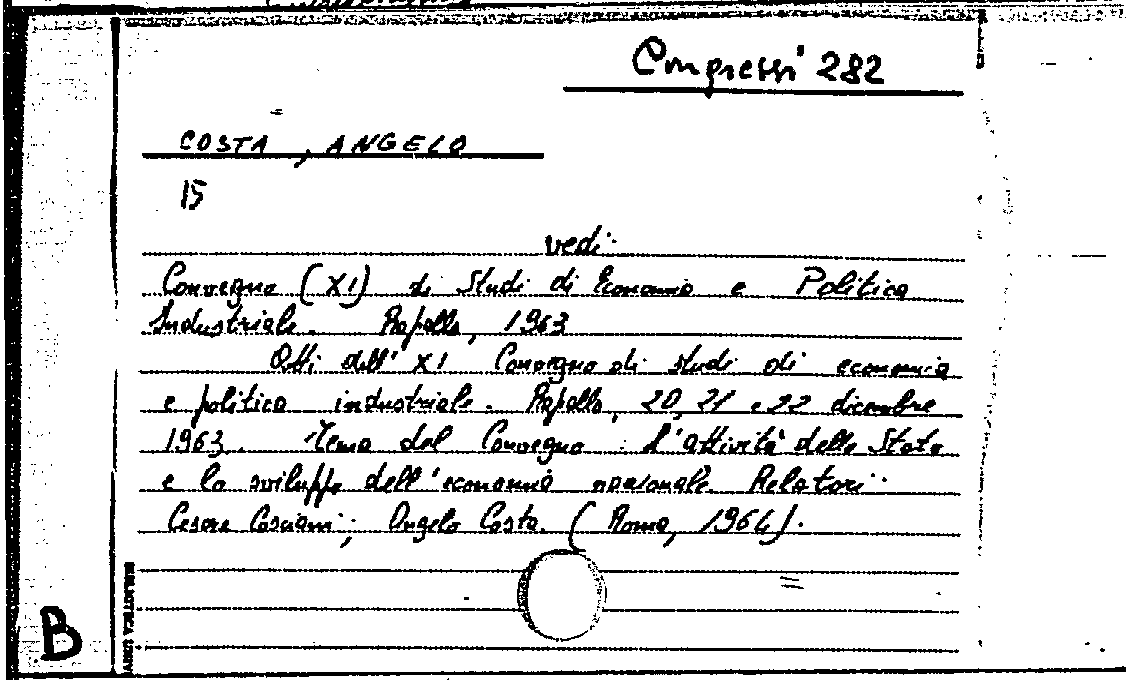 Congressi 282
COSTA, ANGELO
15
vedi:
Convegno (XI) di Studi di Economia e Politica
Industriale. Rapallo, 1963
Atti dell' XI Convegno di studi di economia
e politica industriale. Rapallo, 20, 21 e 22 dicembre
1963. Tema del Convegno: L'attività dello Stato
e lo sviluppo dell'economia nazionale. Relatori:
Cesare Cosciani; Angelo Costa. (Roma, 1964).
B
BIBLIOTECA